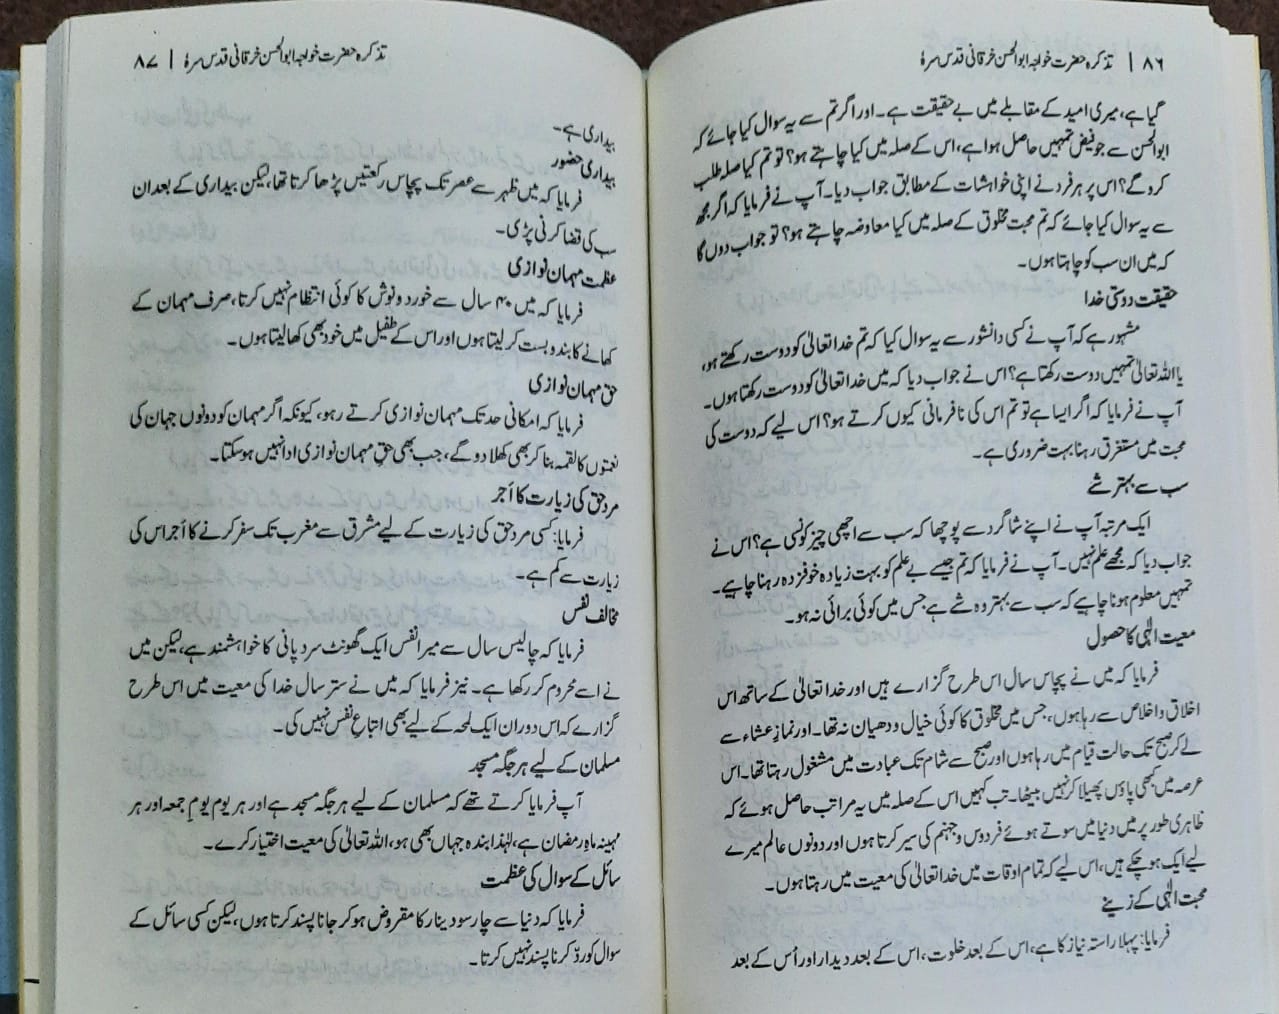 ۸۶ | تذکرہ حضرت خواجہ ابوالحسن خرقانی قدس سرہٗ
گیا ہے، میری امید کے مقابلے میں بے حقیقت ہے۔ اور اگر تم سے یہ سوال کیا جائے کہ
ابوالحسن سے جو فیض تمہیں حاصل ہوا ہے، اس کے صلہ میں کیا چاہتے ہو؟ تو تم کیا صلہ طلب
کرو گے؟ اس پر ہر فرد نے اپنی خواہشات کے مطابق جواب دیا۔ آپ نے فرمایا کہ اگر مجھ
سے یہ سوال کیا جائے کہ تم محبت مخلوق کے صلہ میں کیا معاوضہ چاہتے ہو؟ تو جواب دوں گا
کہ میں ان سب کو چاہتا ہوں۔
حقیقت دوستی خدا
مشہور ہے کہ آپ نے کسی دانشور سے یہ سوال کیا کہ تم خدا تعالیٰ کو دوست رکھتے ہو،
یا اللہ تعالیٰ تمہیں دوست رکھتا ہے؟ اس نے جواب دیا کہ میں خدا تعالیٰ کو دوست رکھتا ہوں۔
آپ نے فرمایا کہ اگر ایسا ہے تو تم اس کی نافرمانی کیوں کرتے ہو؟ اس لیے کہ دوست کی
محبت میں مستغرق رہنا بہت ضروری ہے۔
سب سے بہتر شے
ایک مرتبہ آپ نے اپنے شاگرد سے پوچھا کہ سب سے اچھی چیز کونسی ہے؟ اس نے
جواب دیا کہ مجھے علم نہیں۔ آپ نے فرمایا کہ تم جیسے بے علم کو بہت زیادہ خوفزدہ رہنا چاہیے۔
تمہیں معلوم ہونا چاہیے کہ سب سے بہتر وہ شے ہے جس میں کوئی برائی نہ ہو۔
معیت الٰہی کا حصول
فرمایا کہ میں نے پچاس سال اس طرح گزارے ہیں اور خدا تعالیٰ کے ساتھ اس
اخلاق و اخلاص سے رہا ہوں، جس میں مخلوق کا کوئی خیال و دھیان نہ تھا۔ اور نمازِ عشاء سے
لے کر صبح تک حالت قیام میں رہا ہوں اور صبح سے شام تک عبادت میں مشغول رہتا تھا۔ اس
عرصہ میں کبھی پاؤں پھیلا کر نہیں بیٹھا۔ تب کہیں اس کے صلہ میں یہ مراتب حاصل ہوئے کہ
ظاہری طور پر میں دنیا میں سوتے ہوئے فردوس و جہنم کی سیر کرتا ہوں اور دونوں عالم میرے
لیے ایک ہو چکے ہیں، اس لیے کہ تمام اوقات میں خدا تعالیٰ کی معیت میں رہتا ہوں۔
محبت الٰہی کے زینے
فرمایا: پہلا راستہ نیاز کا ہے، اس کے بعد خلوت، اس کے بعد دیدار اور اُس کے بعد
تذکرہ حضرت خواجہ ابوالحسن خرقانی قدس سرہٗ | ۸۷
بیداری ہے۔
بیداری حضور
فرمایا کہ میں ظہر سے عصر تک پچاس رکعتیں پڑھا کرتا تھا، لیکن بیداری کے بعد ان
سب کی قضا کرنی پڑی۔
عظمت مہمان نوازی
فرمایا کہ میں ۴۰ سال سے خورد و نوش کا کوئی انتظام نہیں کرتا، صرف مہمان کے
کھانے کا بندوبست کر لیتا ہوں اور اس کے طفیل میں خود بھی کھا لیتا ہوں۔
حق مہمان نوازی
فرمایا کہ امکانی حد تک مہمان نوازی کرتے رہو، کیونکہ اگر مہمان کو دونوں جہان کی
نعمتوں کا لقمہ بنا کر بھی کھلا دو گے، جب بھی حقِ مہمان نوازی ادا نہیں ہو سکتا۔
مردِ حق کی زیارت کا اَجر
فرمایا: کسی مردِ حق کی زیارت کے لیے مشرق سے مغرب تک سفر کرنے کا اَجر اس کی
زیارت سے کم ہے۔
مخالف نفس
فرمایا کہ چالیس سال سے میرا نفس ایک گھونٹ سرد پانی کا خواہشمند ہے، لیکن میں
نے اسے محروم کر رکھا ہے۔ نیز فرمایا کہ میں نے ستر سال خدا کی معیت میں اس طرح
گزارے کہ اس دوران ایک لمحہ کے لیے بھی اتباعِ نفس نہیں کی۔
مسلمان کے لیے ہر جگہ مسجد
آپ فرمایا کرتے تھے کہ مسلمان کے لیے ہر جگہ مسجد ہے اور ہر یوم یومِ جمعہ اور ہر
مہینہ ماہِ رمضان ہے، لہٰذا بندہ جہاں بھی ہو، اللہ تعالیٰ کی معیت اختیار کرے۔
سائل کے سوال کی عظمت
فرمایا کہ دنیا سے چار سو دینار کا مقروض ہو کر جانا پسند کرتا ہوں، لیکن کسی سائل کے
سوال کو ردّ کرنا پسند نہیں کرتا۔